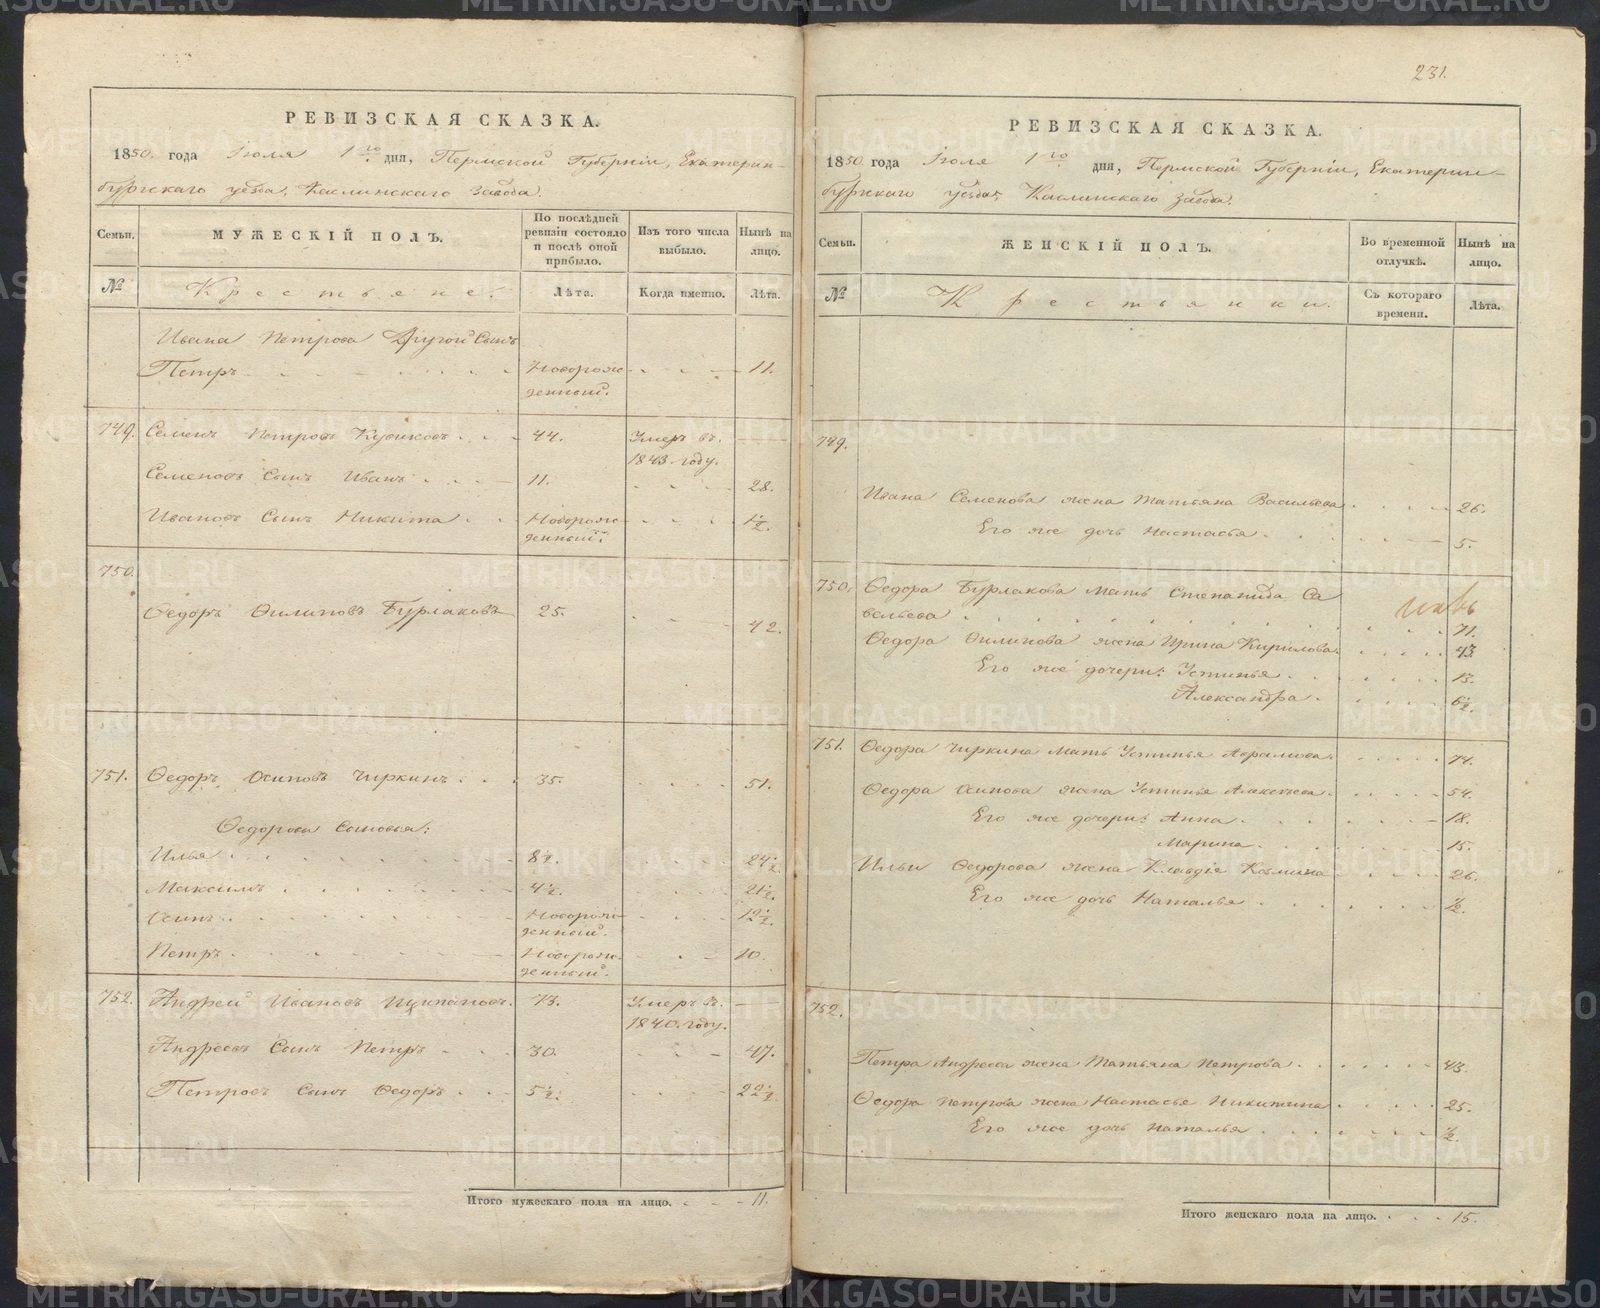 РЕВИЗСКАЯ СКАЗКА.
1850. года Іюля 1го дня, Пермской Губерніи, Екатерин-
бургскаго уезда, Каслинскаго завода.
Семьи. МУЖЕСКІЙ ПОЛЪ. По послѣдней ревизіи состояло и послѣ оной прибыло. Изъ того числа выбыло. Нынѣ на лицо.
№ Крестьяне. Лѣта. Когда именно. Лѣта.
Ивана Петрова Другой Сынъ
Петръ Новорож- 11.
денный.
749. Семенъ Петровъ Куликовъ 44. Умеръ въ
1843. году.
Семеновъ Сынъ Иванъ 11. 28.
Ивановъ Сынъ Никита Новорож- 1/2.
денный.
750.
Ѳедоръ Ѳилиповъ Бурлаковъ 25. 42.
751. Ѳедоръ Осиповъ Чиркинъ 35. 51.
Ѳедорова Сыновья:
Илья 8 1/2. 24 1/2.
Максимъ 4 1/2. 21 1/2.
Осипъ Новорож- 12 1/2.
денный.
Петръ Новорож- 10.
денный.
752. Андрей Ивановъ 73. Умеръ въ
1840. году.
Андреевъ Сынъ Петръ 30. 47.
Петровъ Сынъ Ѳедоръ 5 1/2. 22 1/2.
Итого мужескаго пола на лицо. 11.
231.
РЕВИЗСКАЯ СКАЗКА.
1850. года Іюля 1го дня, Пермской Губерніи, Екатерин-
бургскаго уезда, Каслинскаго завода.
Семьи. ЖЕНСКІЙ ПОЛЪ. Во временной отлучкѣ. Нынѣ на лицо.
№ Крестьянки. Съ котораго времени. Лѣта.
749.
Ивана Семенова жена Татьяна Васильева 26.
Его же дочь Настасья 5.
750. Ѳедора Бурлакова Мать Степанида Са
вельева 71.
Ѳедора Ѳилипова жена Ирина Кирилова 43.
Его же дочери: Устинья 13.
Александра 6 1/2.
751. Ѳедора Чиркина Мать Устинья Аврамова 74.
Ѳедора Осипова жена Устинья Алексѣева 54.
Его же дочери: Анна 18.
Марина 15.
Ильи Ѳедорова жена Клавдія Козмина 26.
Его же дочь Наталья 1/2.
752.
Петра Андреева жена Татьяна Петрова 43.
Ѳедора Петрова жена Настасья Никитина 25.
Его же дочь Наталья 1/2.
Итого женскаго пола на лицо. 15.
METRIKI.GASO-URAL.RU